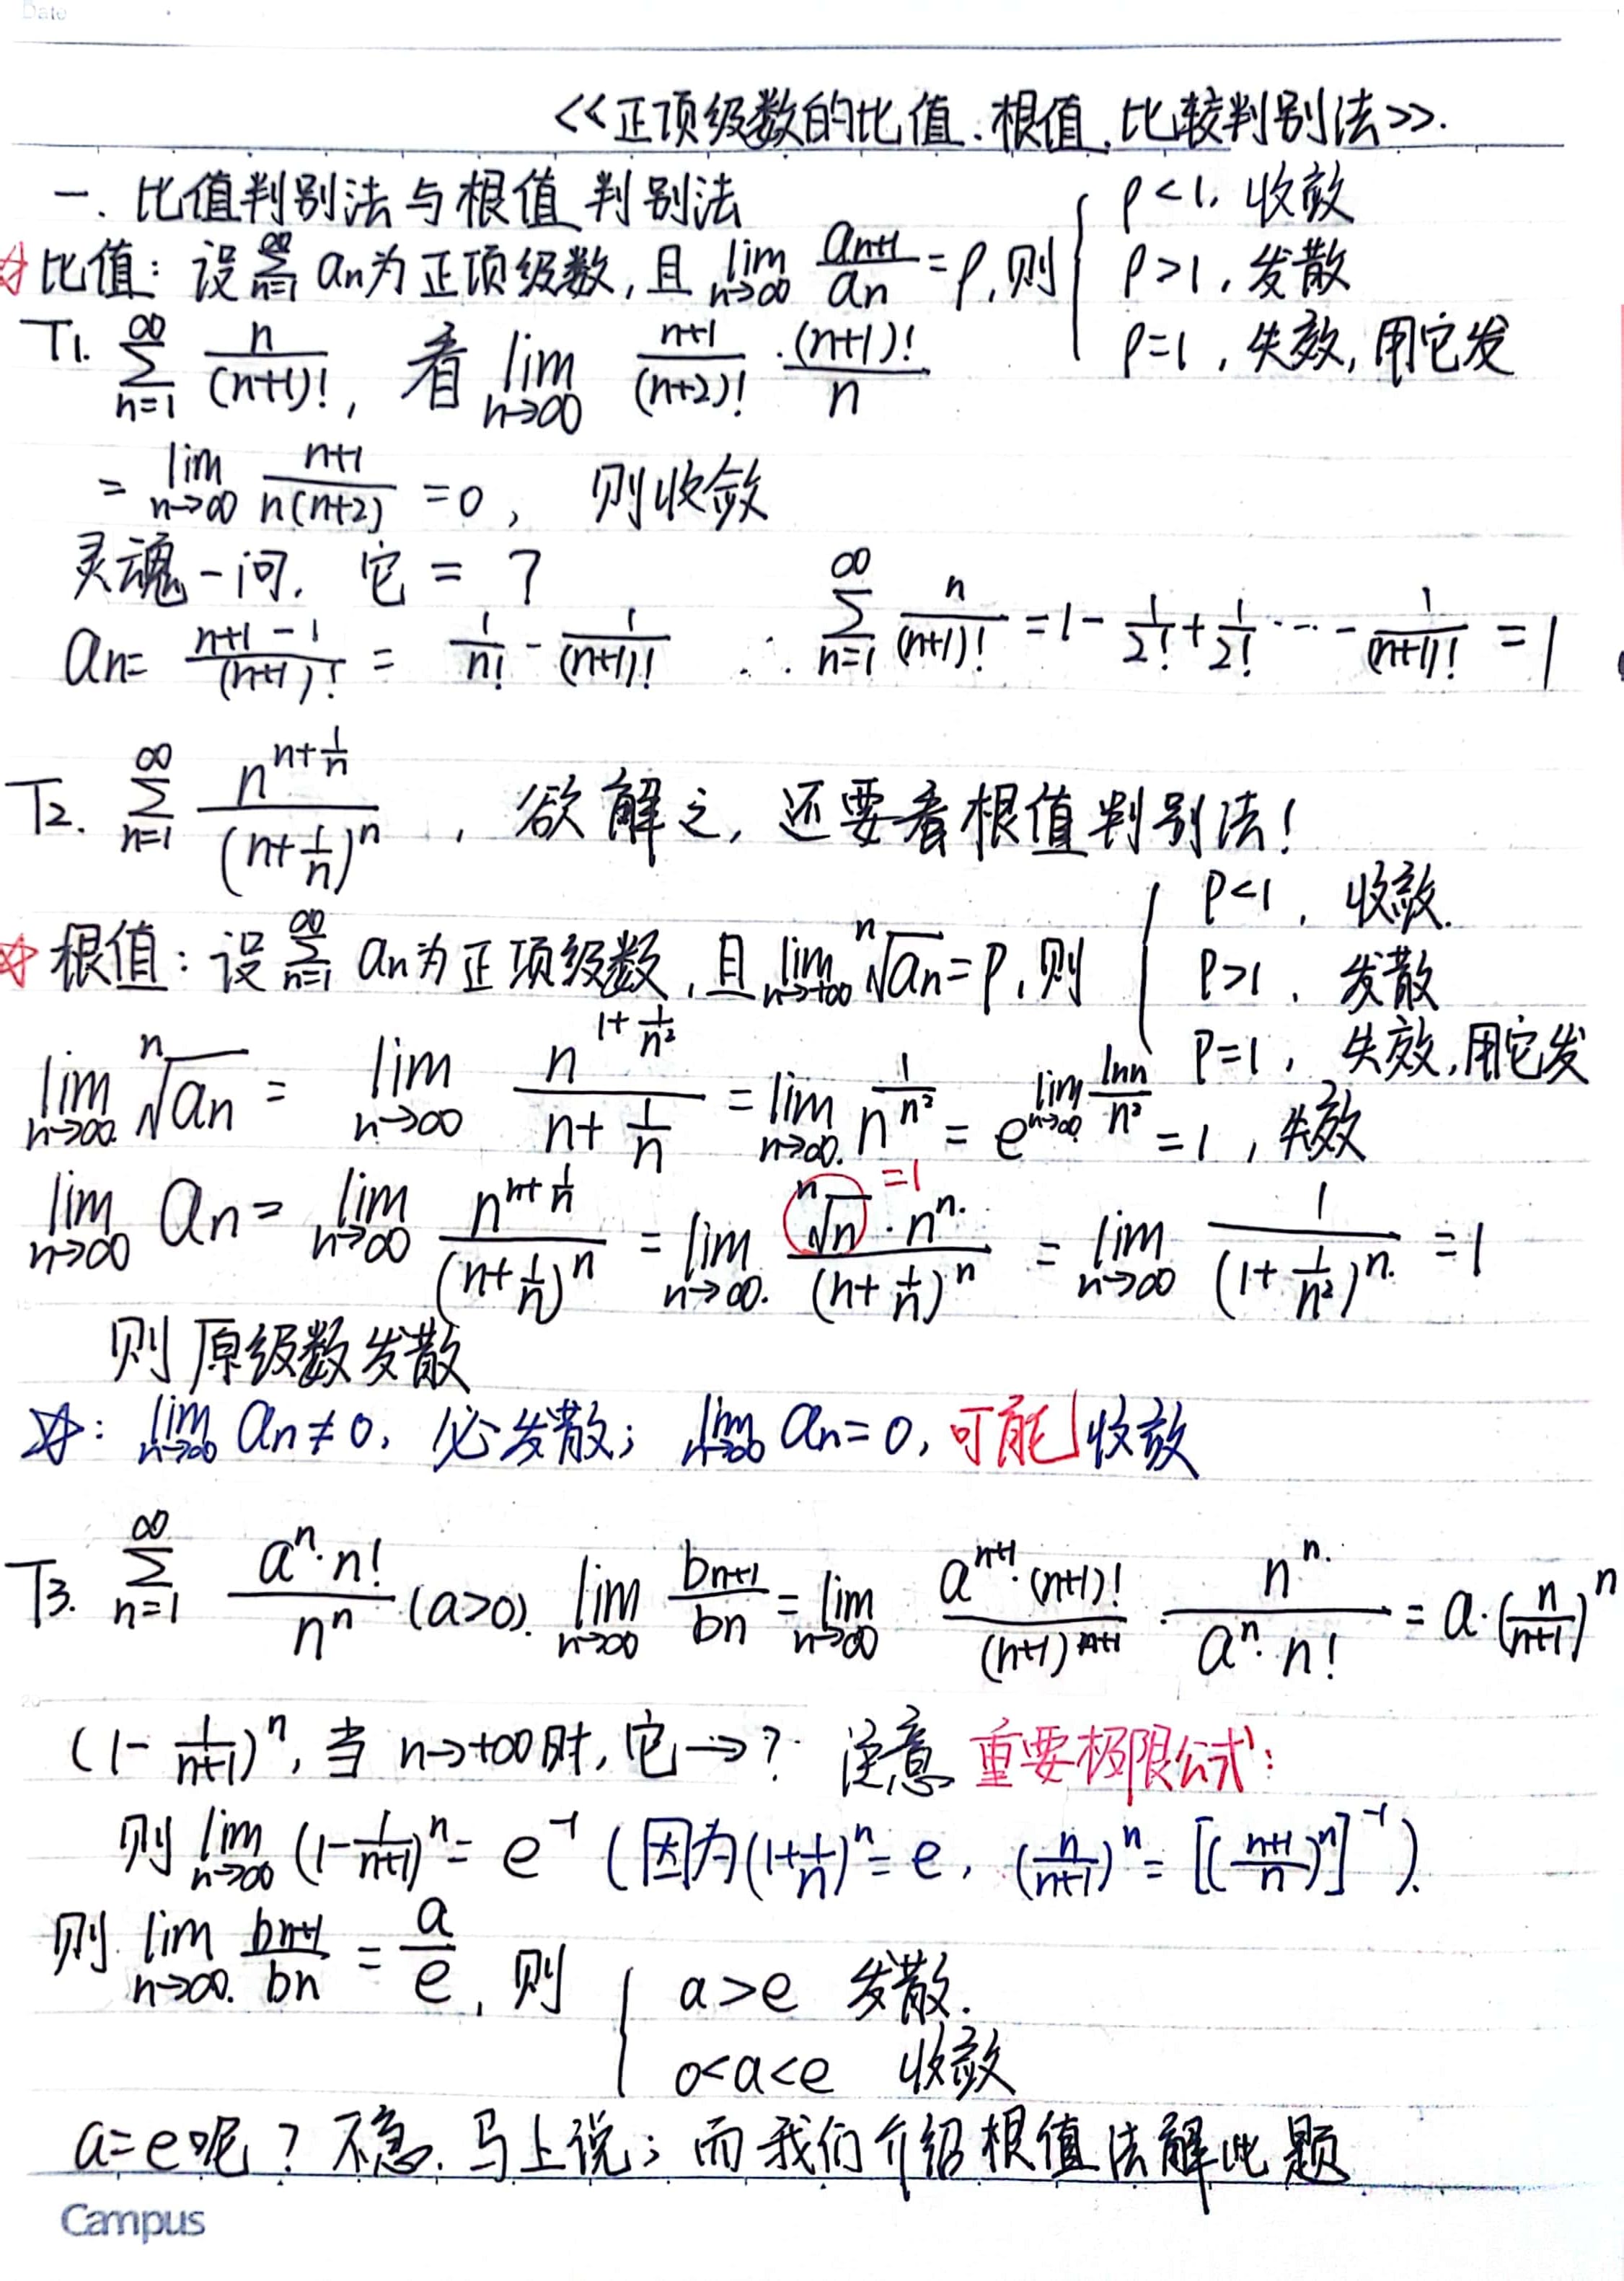 Date
<<正项级数的比值.根值.比较判别法>>.
一. 比值判别法与根值判别法
☆比值: 设 ∑_{n=1}^{∞} an为正项级数, 且 lim_{n→∞} a_{n+1}/a_n = ρ, 则 { ρ<1, 收敛
ρ>1, 发散
ρ=1, 失效, 用它发
T1. ∑_{n=1}^{∞} n/(n+1)!, 看 lim_{n→∞} (n+1)/(n+2)! · (n+1)!/n
= lim_{n→∞} (n+1)/(n(n+2)) = 0, 则收敛
灵魂一问, 它 = ?
an = (n+1-1)/(n+1)! = 1/n! - 1/(n+1)! ∴ ∑_{n=1}^{∞} n/(n+1)! = 1 - 1/2! + 1/2! ··· - 1/(n+1)! = 1
T2. ∑_{n=1}^{∞} n^{n+1/n}/(n+1/n)^n, 欲解之, 还要看根值判别法!
☆根值: 设 ∑_{n=1}^{∞} an为正项级数, 且 lim_{n→+∞} ⁿ√an = ρ, 则 { ρ<1, 收敛.
ρ>1, 发散
ρ=1, 失效, 用它发
lim_{n→∞} ⁿ√an = lim_{n→∞} n^{1+1/n²}/(n+1/n) = lim_{n→∞} n^{1/n²} = e^{lim_{n→∞} lnn/n²} = 1, 失效
lim_{n→∞} an = lim_{n→∞} n^{n+1/n}/(n+1/n)^n = lim_{n→∞} ⁿ√n · n^n/(n+1/n)^n = lim_{n→∞} 1/(1+1/n²)^n = 1
=1
则原级数发散
☆: lim_{n→∞} an≠0, 必发散; lim_{n→∞} an=0, 可能收敛
T3. ∑_{n=1}^{∞} a^n·n!/n^n (a>0). lim_{n→∞} b_{n+1}/b_n = lim_{n→∞} a^{n+1}·(n+1)!/(n+1)^{n+1} · n^n/(a^n·n!) = a·(n/(n+1))^n
(1-1/(n+1))^n, 当 n→+∞时, 它→? 注意 重要极限公式:
则 lim_{n→∞} (1-1/(n+1))^n = e^{-1} (因为(1+1/n)^n = e, (n/(n+1))^n = [((n+1)/n)^n]^{-1}).
则 lim_{n→∞} b_{n+1}/b_n = a/e, 则 { a>e 发散.
0<a<e 收敛
a=e呢? 不急, 马上说; 而我们介绍根值法解此题
Campus